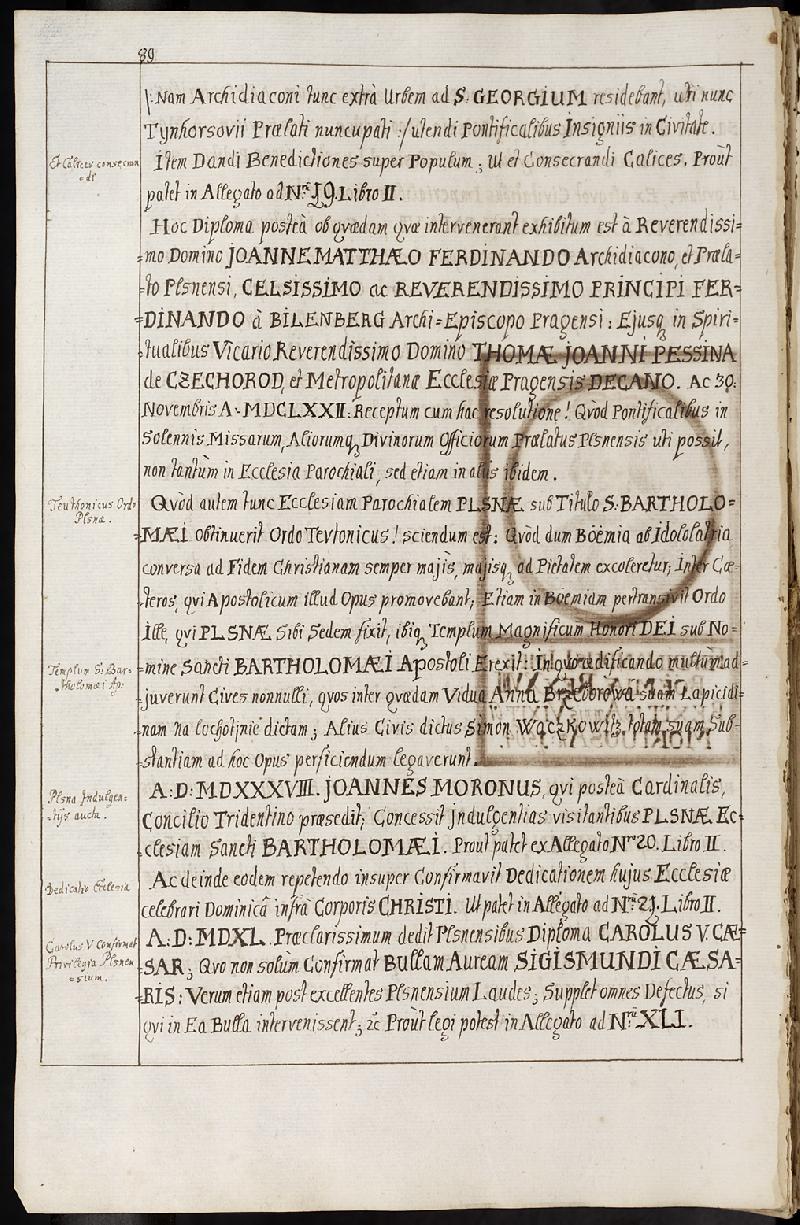 89
/: Nam Archidiaconi tunc extrà Urbem ad S. GEORGIUM residebant, uti nunc
Tynhorsovii Prælati nuncupati :/ utendi Pontificalibus Insigniis in Civitate.
Et Calices consecran
di
Item Dandi Benedictiones super Populum; Ut et Consecrandi Calices. Proùt
patet in Allegato ad Nrũ 19. Libro II.
Hoc Diploma posteà ob quædam quæ intervenerant exhibitum est à Reverendissi=
=mo Domino JOANNE MATTHÆO FERDINANDO Archidiacono, et Præla=
=to Plsnensi, CELSISSIMO ac REVERENDISSIMO PRINCIPI FER=
=DINANDO à BILENBERG Archi=Episcopo Pragensi: Ejusq, in Spiri=
=tualibus Vicario Reverendissimo Domino THOMÆ JOANNI PESSINA
de CZECHOROD, et Metropolitanæ Ecclesiæ Pragensis DECANO. Ac 30.
Novembris A. MDCLXXII: Receptum cum hac resolutione! Quòd Pontificalibus in
Solennis Missarum, Aliorumq, Divinorum Officiorum Prælatus Plsnensis uti possit,
non tantùm in Ecclesia Parochiali, sed etiam in aliis ibidem.
Teuthonicus Ordo
Plsnæ.
Quòd autem tunc Ecclesiam Parochialem PLSNÆ sub Titulo S. BARTHOLO=
=MÆI obtinuerit Ordo Tevtonicus! sciendum est: Quòd dum Böemia ab Idololatria
conversa ad Fidem Christianam semper majis, majisq, ad Pietatem excoleretur; Inter Cæ=
teros, qvi Apostolicum illud Opus promovebant; Etiam in Boemiam pertransivit Ordo
Ille, qvi PLSNÆ Sibi Sedem fixit, ibiq, Templum Magnificum Honori DEI sub No=
Templum S. Bar=
=tholomæi Ap:
=mine Sancti BARTHOLOMÆI Apostoli Erexit: In quo ædificando multùm ad=
=juverunt Cives nonnulli, qvos inter quædam Vidua Anna Lapicidi=
=nam na lochotjnie dictam; Alius Civis dictus Simon totam suam Sub=
=stantiam ad hoc Opus perficiendum legaverunt.
Plsna Indulgen=
=tijs aucta.
A: D: MDXXXVIII. JOANNES MORONUS, qvi posteà Cardinalis,
Concilio Tridentino præsedit; Concessit Jndulgentias visitantibus PLSNÆ Ec=
=clesiam Sancti BARTHOLOMÆI. Proùt patet ex Allegato Nrõ 20. Libro II.
Dedicatio Ecclesiæ
Ac deinde eodem repetendo insuper Confirmavit Dedicationem hujus Ecclesiæ
celebrari Dominicâ infrà Corporis CHRISTI. Ut patet in Allegato ad Nrũ 21. Libro II.
Carolus V. Confirmat
Privilegia Plsnen
=sium.
A: D: MDXL. Præclarissimum dedit Plsnensibus Diploma CAROLUS V. CÆ=
SAR; Qvo non solùm Confirmat Bullam Auream SIGISMUNDI CÆSA=
=RIS: Verum etiam post excellentes Plsnensium Laudes; Supplet omnes Defectus, si
qvi in Ea Bulla intervenissent; &c Proùt legi potest in Allegato ad Nrũ XLI.